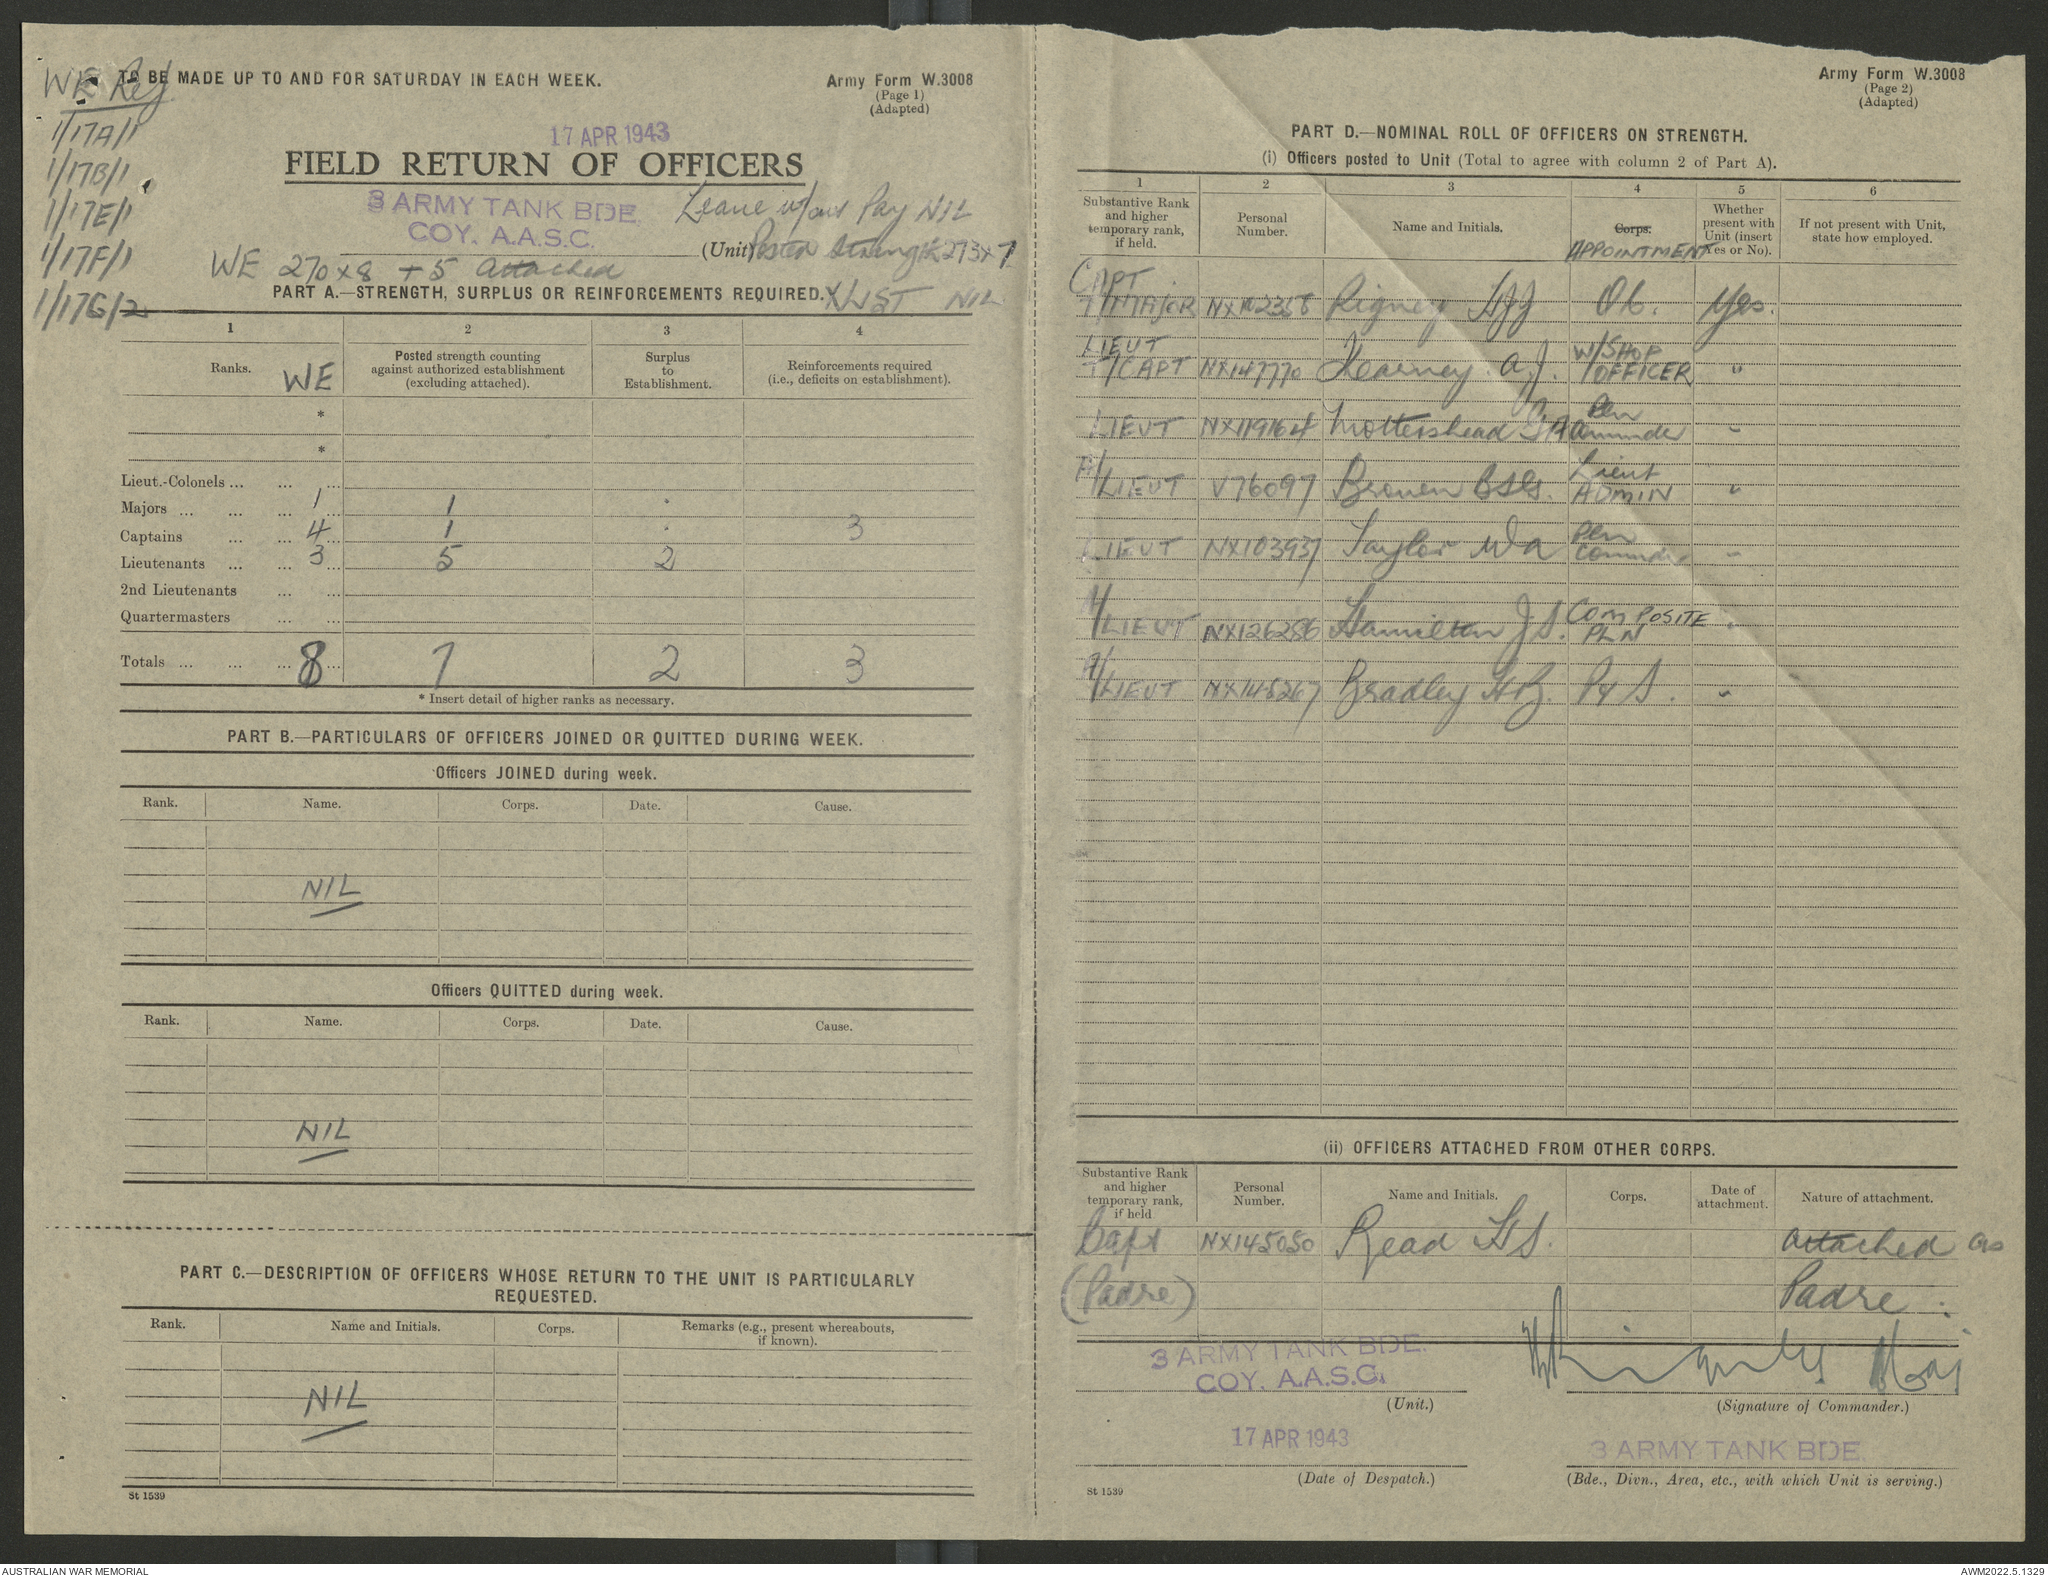 WE Ref
1/17A/1
1/17B/1
1/17E/1
1/17F/1
1/17G/2
TO BE MADE UP TO AND FOR SATURDAY IN EACH WEEK.
Army Form W.3008
(Page 1)
(Adapted)
17 APR 1943
FIELD RETURN OF OFFICERS
3 ARMY TANK BDE.
COY. A.A.S.C.
Leave w/out Pay NIL
(Unit) Posted Strength 273 x 7
WE 270 x 8 + 5 Attached
PART A.—STRENGTH, SURPLUS OR REINFORCEMENTS REQUIRED. X LIST NIL
1 2 3 4
Ranks. WE
Posted strength counting against authorized establishment (excluding attached).
Surplus to Establishment.
Reinforcements required (i.e., deficits on establishment).
*
*
Lieut.-Colonels ... ... ...
Majors ... ... ... 1 ... 1 .
Captains ... ... 4 ... 1 . 3
Lieutenants ... ... 3 ... 5 2
2nd Lieutenants ... ...
Quartermasters ... ...
Totals ... ... ... 8 ... 7 2 3
* Insert detail of higher ranks as necessary.
PART B.—PARTICULARS OF OFFICERS JOINED OR QUITTED DURING WEEK.
Officers JOINED during week.
Rank. Name. Corps. Date. Cause.
NIL
Officers QUITTED during week.
Rank. Name. Corps. Date. Cause.
NIL
PART C.—DESCRIPTION OF OFFICERS WHOSE RETURN TO THE UNIT IS PARTICULARLY
REQUESTED.
Rank. Name and Initials. Corps. Remarks (e.g., present whereabouts, if known).
NIL
St 1539
Army Form W.3008
(Page 2)
(Adapted)
PART D.—NOMINAL ROLL OF OFFICERS ON STRENGTH.
(i) Officers posted to Unit (Total to agree with column 2 of Part A).
1 2 3 4 5 6
Substantive Rank and higher temporary rank, if held.
Personal Number.
Name and Initials.
Corps.
APPOINTMENT
Whether present with Unit (insert Yes or No).
If not present with Unit, state how employed.
CAPT
T/MAJOR NX102358 Rigney OC. Yes.
LIEUT
T/CAPT NX147770 Kearney. A.J. W/SHOP OFFICER "
LIEUT NX119164 Mottershead Pln Commander "
A/LIEUT V76097 Brown Lieut ADMIN "
LIEUT NX103937 Taylor WA Pln Commander "
A/LIEUT NX126286 Hamilton J.S. COMPOSITE PLN "
A/LIEUT NX145267 Bradley "
(ii) OFFICERS ATTACHED FROM OTHER CORPS.
Substantive Rank and higher temporary rank, if held
Personal Number.
Name and Initials.
Corps.
Date of attachment.
Nature of attachment.
Capt NX145050 Read HS. Attached as
(Padre) Padre.
3 ARMY TANK BDE.
COY. A.A.S.C.
(Unit.)
Maj
(Signature of Commander.)
17 APR 1943
(Date of Despatch.)
3 ARMY TANK BDE.
(Bde., Divn., Area, etc., with which Unit is serving.)
St 1539
AUSTRALIAN WAR MEMORIAL
AWM2022.5.1329